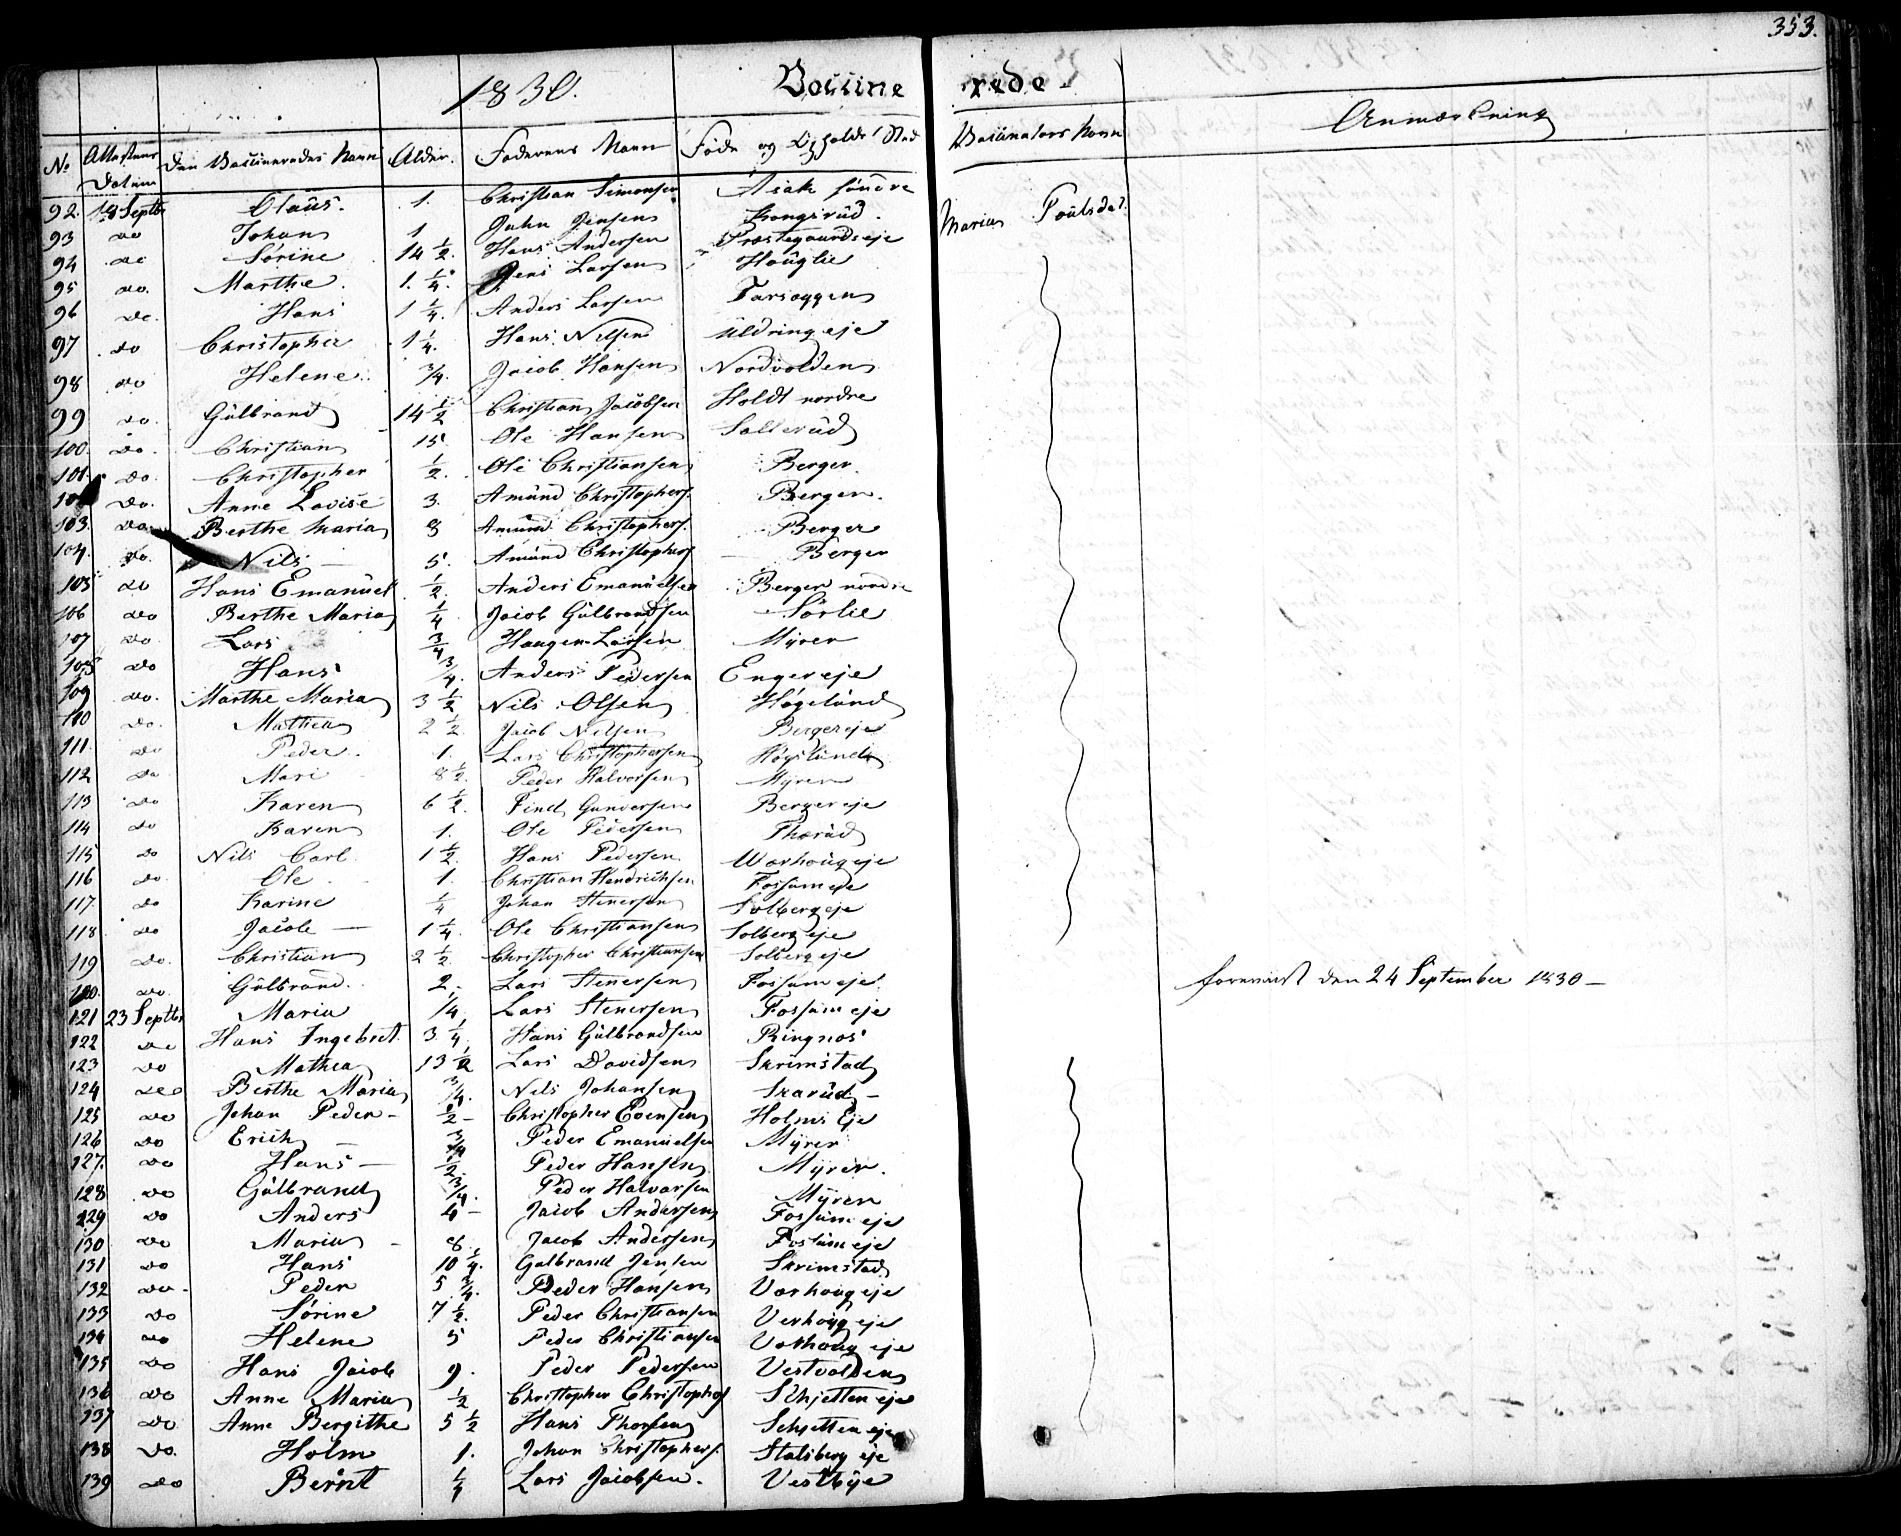 353.
1830. Vaccinerede
No Attestens Datum Den Vaccineredes Navn Alder. Faderens Navn Føde og Opholds Sted Vaccinators Navn Anmærkning
92. 18 Septbr Claus. 1. Christian Simonsen Asak søndre Maria Poulsdat.
93 do Johan 1 John Jensen Kongsrud.
94 do Sørine 14 1/2. Hans Andersen Præstegaardseje
95 do. Marthe. 1. 1/4. Jens Larsen Houglie
96 do. Hans 1 1/4. Anders Larsen Farsæggen
97 do Christopher 1 1/4. Hans Nilsen Uldring eje
98 do Helene 3/4. Jacob Hansen Nordvolden
99 do. Gulbrand 14 1/2 Christian Jacobsen Holdt nordre
100. do. Christian 15. Ole Hansen Sallerud
101. do. Christopher 1/2. Ole Christiansen Berger.
10 do. Anne Lovise 3. Amund Christophers. Berger.
103. do Berthe Maria 8 Amund Christophers. Berger
104. do. Nils — 5. Amund Christophers — Berger
105 do Hans Emanuel 1/2. Anders Emanuelsen Berger nordre
106 do Berthe Maria 1/4 Jacob Gulbrandsen Sørlie
107 do. Lars 3/4 Haagen Larsen Myrer
108 do Hans 3/4. Anders Pedersen Enger eje
109 do. Marthe Maria 3 1/2 Nils Olsen Høgelund
110 do. Mathea 2 1/2 Jacob Nilsen Berger eje
111. do Peder. 1. Lars Christophersen Høyslund
112 do Mari 8 1/2. Peder Halvorsen Myrer
113 do Karen 6 1/2. Find Gundersen Berger eje
114 do Karen 1. Ole Pedersen Thorud
115 do Nils Carl. 1 1/2. Hans Pedersen Warhoug eje
116 do. Ole 1. Christian Hendrichsen Fossum eje
117. do Karine 1/4 Johan Stenersen Solberg eje
118. do Jacob — 1 1/4. Ole Christiansen Solberg eje
119 do. Christian 2 1/2. Christopher Christiansen Solberg eje
120. do. Gulbrand. 2. Lars Stenersen Fossum eje. foreviist den 24 September 1830 —
121 23 Septbr Maria 1/4 Lars Stenersen Fossum eje
122 do Hans Ingebret. 3 1/4. Hans Gulbrandsen Ringnos
123 do Mathea 13 1/2 Lars Davidsen Skrimstad
124 do Berthe Maria 3/4. Nils Johansen Skarud —
125 do Johan Peder — 1/2 — Christopher Evensen Holms Eje
126 do Erich — 3/4 Peder Emanuelsen Myrer
127. do Hans — 1/2. Peder Hansen Myrer.
128 do Gulbrand 3/4. Peder Halvorsen Myren
129 do Anders 4 — Jacob Andersen Fossum eje
130 do Maria — 8. Jacob Andersen Fossum eje
131 do Hans 10 1/4. Gulbrand Jensen Skrimstad
132 do. Peder 5 3/4. Peder Hansen Varhoug eje
133 do Sørine 7 1/2. Peder Christiansen Verhoug eje
134 do Helene 5 Peder Christiansen Vorhoug eje
135 do Hans Jacob 9. Peder Pedersen Vestvolden
136 do Anne Maria 1/2 Christopher Christophers Skjetten eje
137 do Anne Bergithe 5 1/2 Hans Thorsen Schjetten eje
138 do. Holm 1. Johan Christophers. Stalsberg eje
139 do Bernt 1/4 Lars Jacobsen. Vestbye